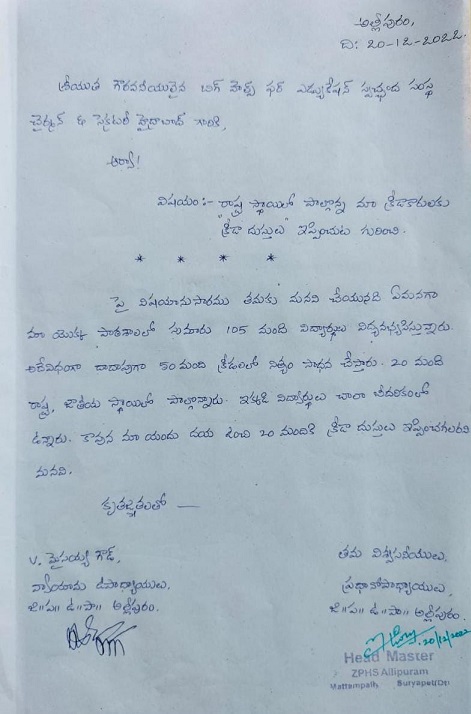 అల్లీపురం,
ది: 20-12-2022.
శ్రీయుత గౌరవనీయులైన బిగ్ హెల్ప్ ఫర్ ఎడ్యుకేషన్ స్వచ్ఛంద సంస్థ
చైర్మన్ & సెక్రటరీ హైదరాబాద్ గారికి,
ఆర్యా!
విషయం:- రాష్ట్ర స్థాయిలో పాల్గొన్న మా క్రీడాకారులకు
"క్రీడా దుస్తులు" ఇప్పించుట గురించి.
* * * *
పై విషయానుసారము తమకు మనవి చేయునది ఏమనగా
మా యొక్క పాఠశాలలో సుమారు 105 మంది విద్యార్థులు విద్యనభ్యసిస్తున్నారు.
అదేవిధంగా దాదాపుగా 50 మంది క్రీడలలో నిత్యం సాధన చేస్తారు. 20 మంది
రాష్ట్ర, జాతీయ స్థాయిలో పాల్గొన్నారు. ఇక్కడి విద్యార్థులు చాలా పేదరికంలో
ఉన్నారు. కావున మా యందు దయ ఉంచి 20 మందికి క్రీడా దుస్తులు ఇప్పించగలరని
మనవి.
కృతజ్ఞతలతో —
V. మైసయ్య గౌడ్,
వ్యాయామ ఉపాధ్యాయులు,
జి॥ప॥ ఉ॥పా॥ అల్లీపురం.
తమ విశ్వసనీయులు,
ప్రధానోపాధ్యాయులు,
జి॥ప॥ ఉ॥పా॥ అల్లీపురం.
20/12/2022
Head Master
ZPHS Allipuram
Mattampally, Suryapet(Dt)